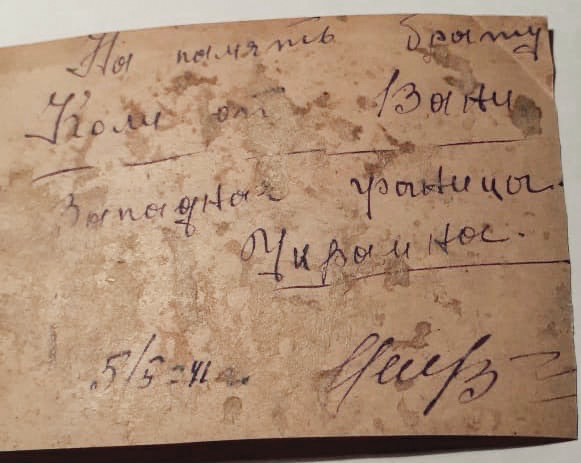 На память брату
Коли от Вани
Западная граница.
Украина.
5/5-41